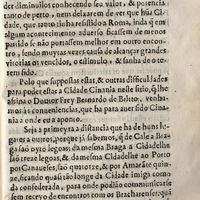 der diminuîlos conhecendo seu valor, & potencia
tanto de perto, nem deixarem de ver que húa Ci-
dade, que tanto se havia resistido a Roma, inda q̃ em
algum acontecimento adverso ficassem de menos
partido se não pussessem melhor em outro encon-
tro, sendo muytas vezes causa de alcançar grandes
vitorias os vencidos, o estimulo, & sanha de o te-
rem sido.
Polo que suppostas estas, & outras difficuldades
para poder estar a Cidade Cinania neste sitio, q̃ lhe
assinou o Doutor Frey Bernardo de Britto, venha-
mos às conveniencias, que ha para aver sido Cina-
nia a onde eu a aponto.
Seja a primeyra a distancia que ha de huns lu-
gares a outros, porque já sabemos, q̃ de Cale a Bra-
ga são oyto legoas; da mesma Braga a Cidadelhe
são treze legoas, & da mesma Cidadelhe ao Porto
por Canaveses, são quatorze, & por Amarante quin-
ze, ficando assi muyto longe da Cidade imiga como
da confederada, para onde podião communicarse
sem receyo de encontros com os Bracharenses que